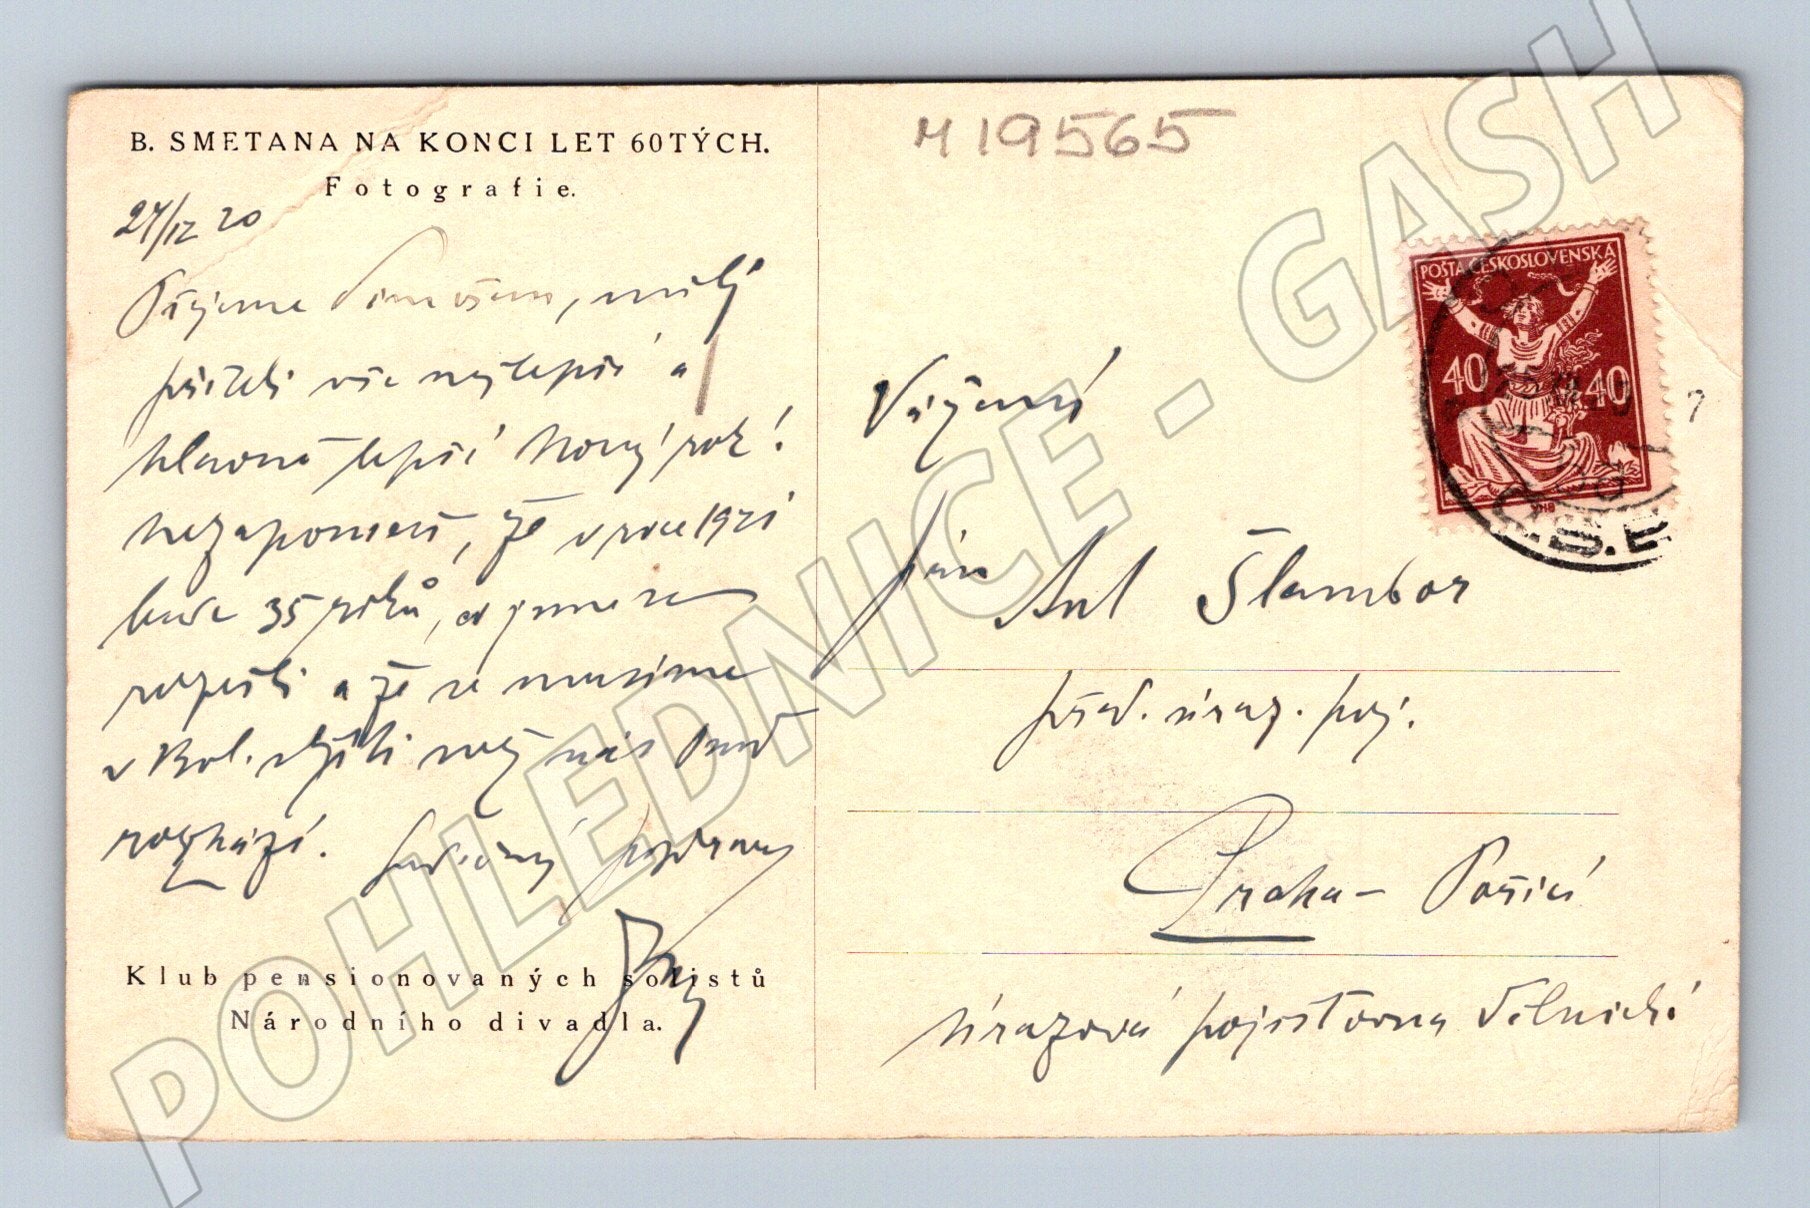 B. SMETANA NA KONCI LET 60TÝCH.
Fotografie.
24/IZ 20
Přejeme Vám všem, milý
příteli vše nejlepší a
hlavně lepší Nový rok!
Nezapomeň, že v roce 1921
bude 35 roků, co jsme se
rozešli a že se musíme
v Kol. sejíti než nás Pánbů
rozhází. Srdečný pozdrav
Klub pensionovaných solistů
Národního divadla.
M 19565
POŠTA ČESKOSLOVENSKÁ
40 40
Č.S.P.
Vážený
pán
Ant Šlambor
před. úraz. poj.
Praha - Poříčí
Úrazová pojišťovna dělnická
POHLEDNICE - GASH